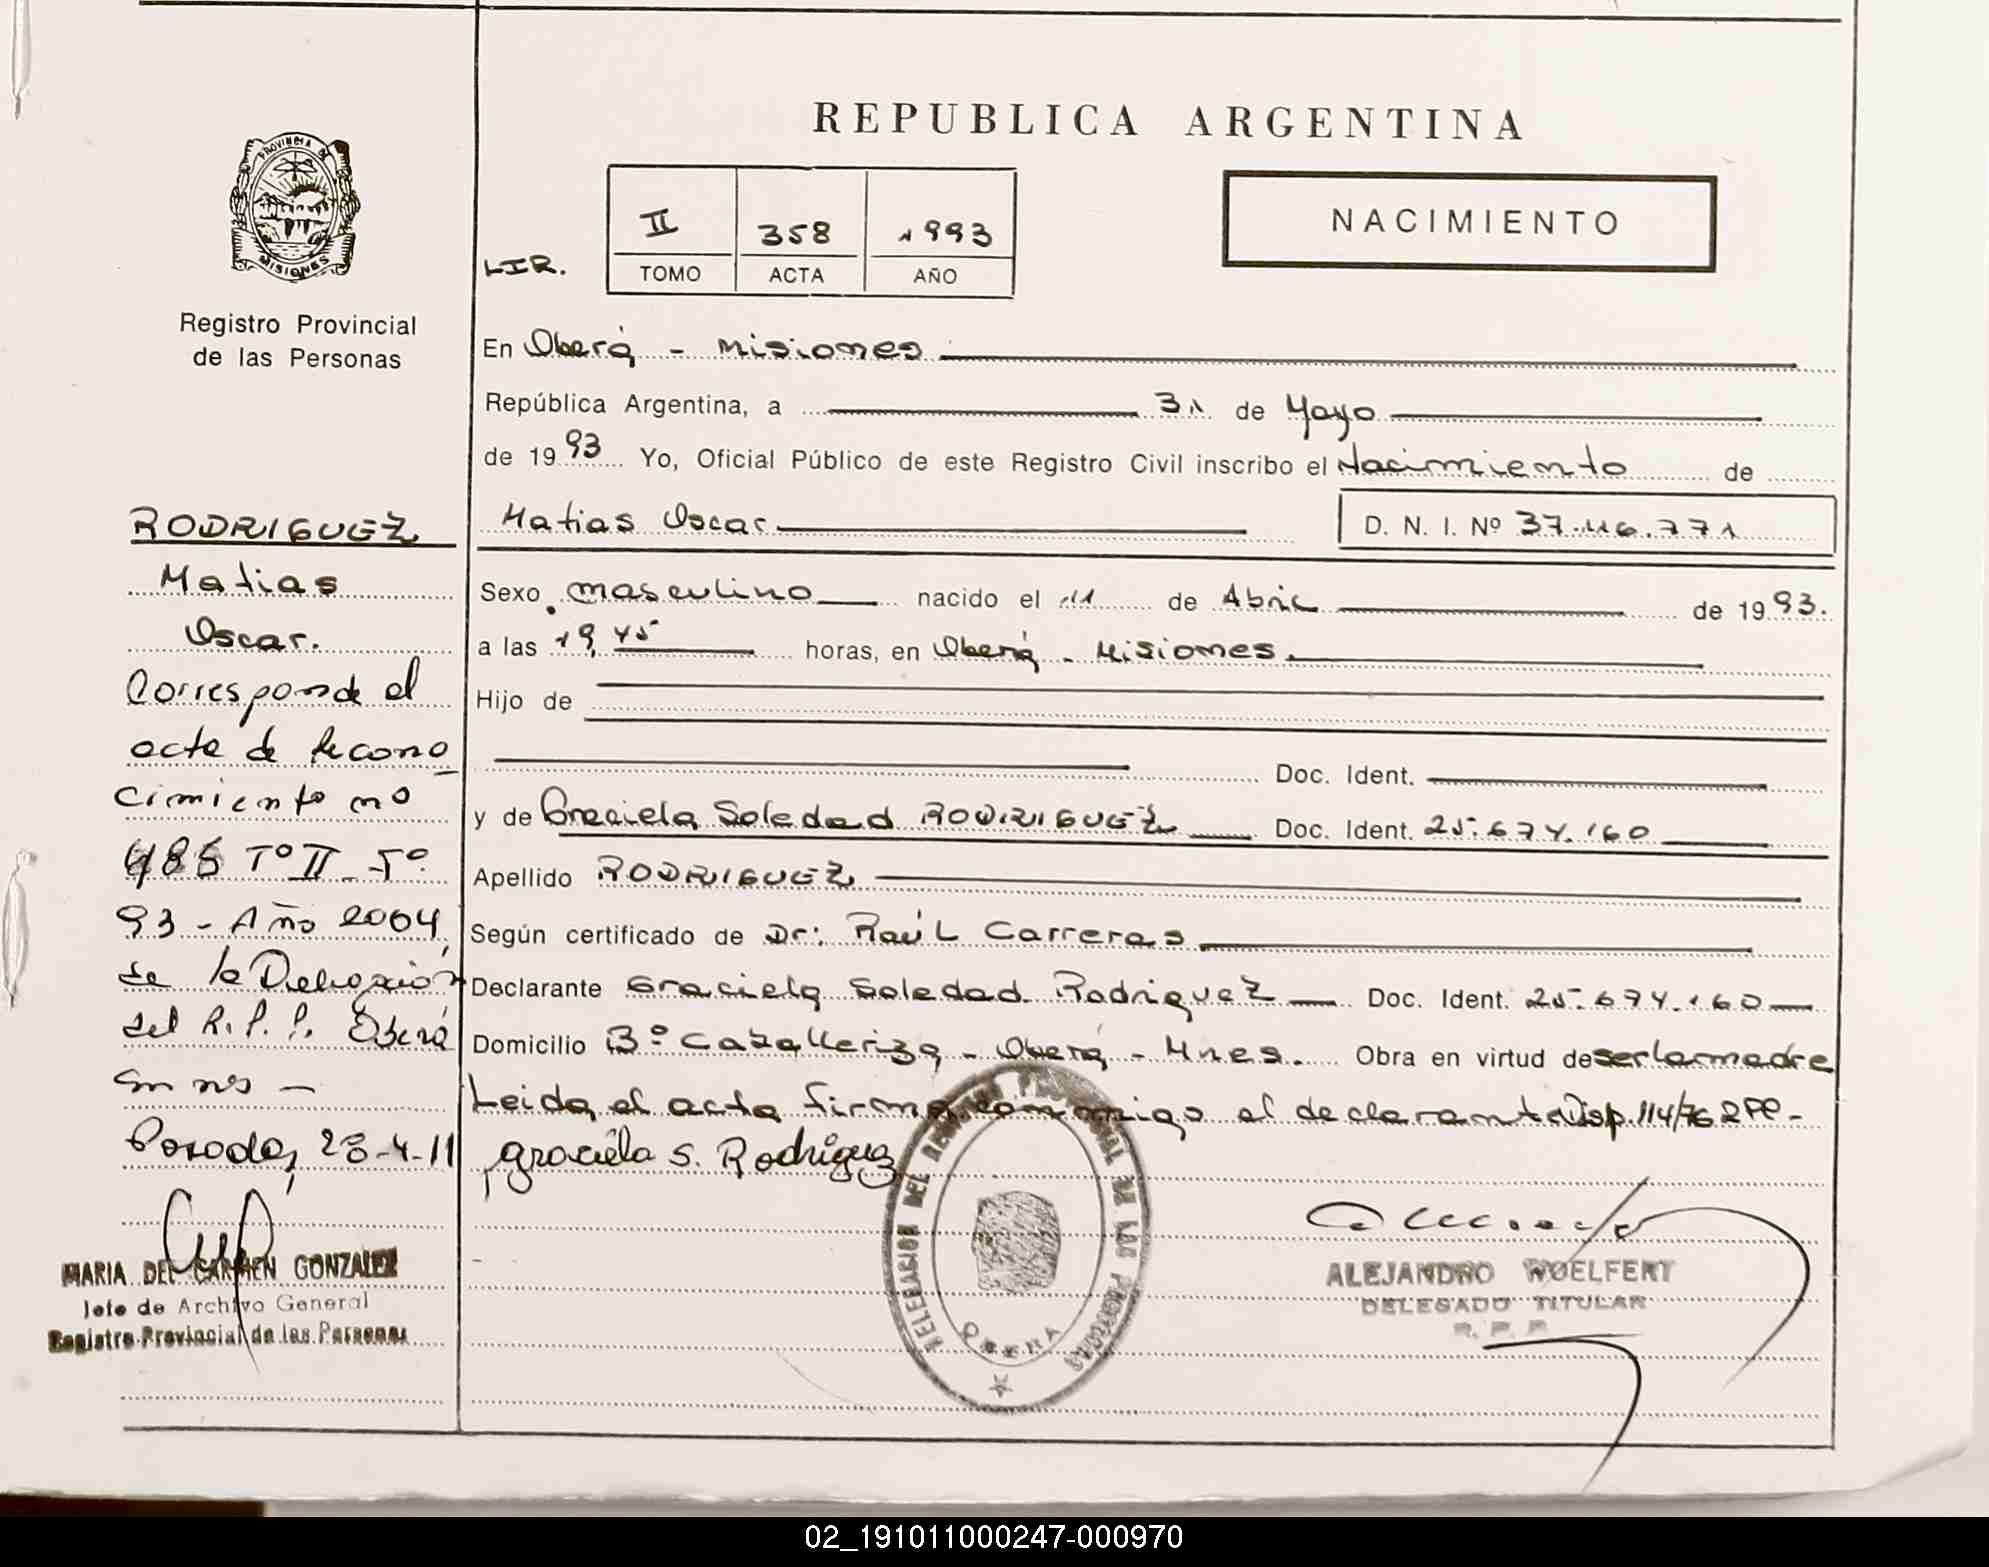 REPUBLICA ARGENTINA
PROVINCIA DE
MISIONES
Registro Provincial
de las Personas
II 358 1993
LIR.
TOMO ACTA AÑO
NACIMIENTO
En Oberá - Misiones
República Argentina, a 31 de Mayo
de 1993 Yo, Oficial Público de este Registro Civil inscribo el Nacimiento de
Matias Oscar D. N. I. Nº 37.116.771
Sexo masculino nacido el 11 de Abril de 1993.
a las 19,45 horas, en Oberá - Misiones
Hijo de
Doc. Ident.
y de Graciela Soledad RODRIGUEZ Doc. Ident. 25.674.160
Apellido RODRIGUEZ
Según certificado de Dr: Raúl Carreras
Declarante Graciela Soledad Rodriguez Doc. Ident. 25.674.160
Domicilio Bº Caballeriza - Oberá - Mnes. Obra en virtud de ser la madre
Leida el acta firma conmigo el declarante Disp. 114/76 RPP-
graciela S. Rodriguez
RODRIGUEZ
Matias
Oscar.
Corresponde el
acta de Recono
cimiento nº
486 Tº II - Fº
93 - Año 2004,
de la Delegación
del R.P.P. Oberá
mnes -
Posadas, 28-4-11
MARIA DEL CARMEN GONZALEZ
Jefe de Archivo General
Registro Provincial de las Personas
DELEGACION DEL REGISTRO PROVINCIAL DE LAS PERSONAS
OBERA
ALEJANDRO WOELFERT
DELEGADO TITULAR
R. P. P.
02_191011000247-000970